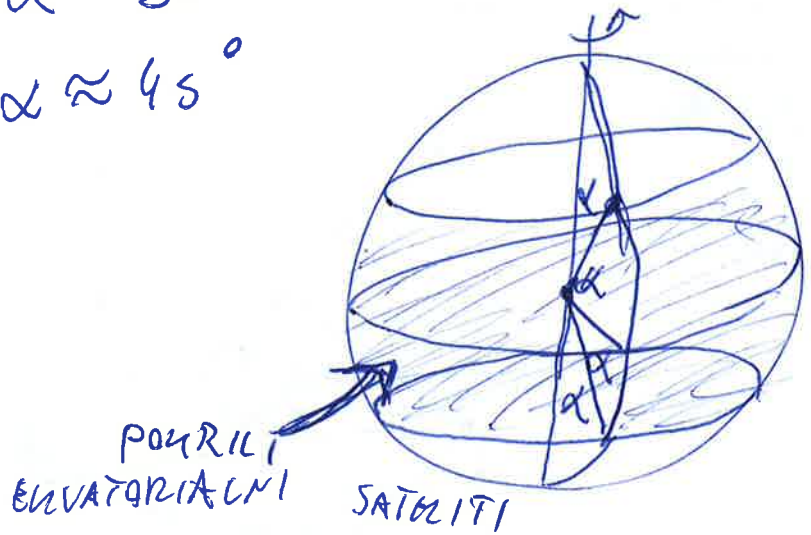 α ≈ 45°
α
α
α
α
POKRILI
EKVATORIALNI SATELITI